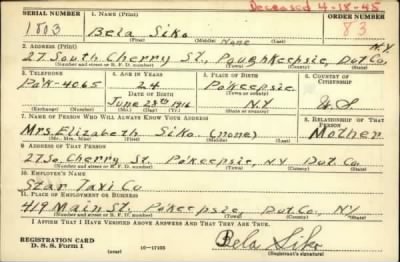 Deceased 4-18-45
SERIAL NUMBER 1. NAME (Print) ORDER NUMBER
1803 Bela Siko 83
(First) (Middle) None (Last)
2. ADDRESS (Print) N.Y.
27 South Cherry St., Poughkeepsie, Dut Co,
(Number and street or R. F. D. number) (Town) (County) (State)
3. TELEPHONE 4. AGE IN YEARS 5. PLACE OF BIRTH 6. COUNTRY OF CITIZENSHIP
POK-4065 24 Pokeepsie
DATE OF BIRTH (Town)
June 28th 1916 N.Y. U S
(Exchange) (Number) (Mo.) (Day) (Yr.) (State or country)
7. NAME OF PERSON WHO WILL ALWAYS KNOW YOUR ADDRESS 8. RELATIONSHIP OF THAT PERSON
Mrs. Elizabeth Siko. (none) Mother
(Mr., Mrs., Miss) (First) (Middle) (Last)
9. ADDRESS OF THAT PERSON
27 So. Cherry St. Pokeepsie, N.Y Dut. Co.
(Number and street or R. F. D. number) (Town) (County) (State)
10. EMPLOYER'S NAME
Star Taxi Co
11. PLACE OF EMPLOYMENT OR BUSINESS
419 Main St. Pokeepsie, Dut Co, NY
(Number and street or R. F. D. number) (Town) (County) (State)
I AFFIRM THAT I HAVE VERIFIED ABOVE ANSWERS AND THAT THEY ARE TRUE.
REGISTRATION CARD
D. S. S. Form 1 (over) 16—17105 Bela Siko
(Registrant's signature)